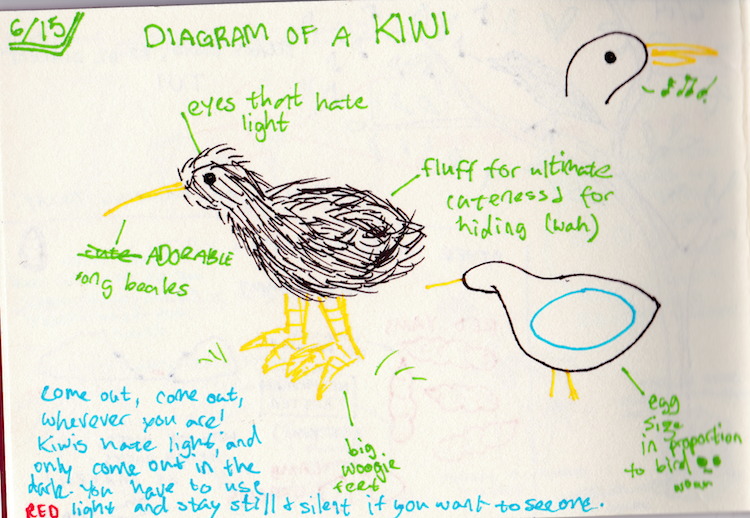 6/15
DIAGRAM OF A KIWI
eyes that hate
light
fluff for ultimate
cuteness & for
hiding (wah)
cute ADORABLE
long beaks
come out, come out,
wherever you are!
Kiwis hate light, and
only come out in the
dark. You have to use
RED light and stay still & silent if you want to see one.
big
woogie
feet
egg
size
in proportion
to bird
woah